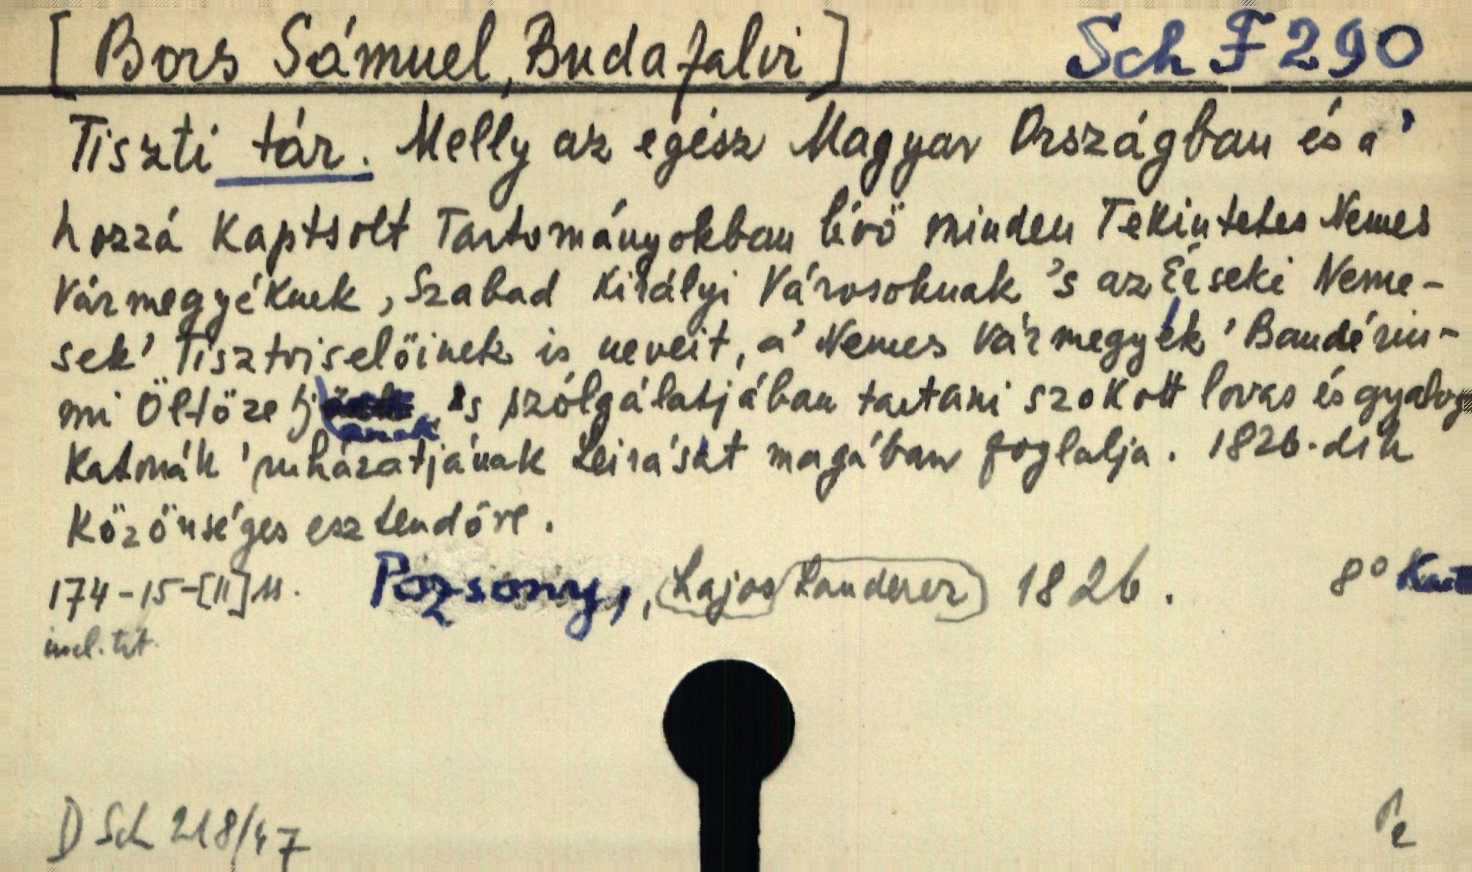 [Bors Sámuel, Budafalvi] Sch F 290
Tiszti tár. Melly az egész Magyar Országban és a'
hozzá Kaptsolt Tartományokban lévő minden Tekintetes Nemes
Vármegyéknek, Szabad Királyi Városoknak 's az Érseki Neme-
sek' Tisztviselőinek is neveit, a' Nemes Vármegyék' Bandériu-
mi Öltözetjének 's szólgálatjában tartani szokott lovas és gyalog
Katonák' ruházatjának Leirását magában foglalja. 1826-dik
Közönséges esztendőre.
174-15-[11] 11. Pozsony, Lajos Landerer 1826. 8°
D Sch 218/47